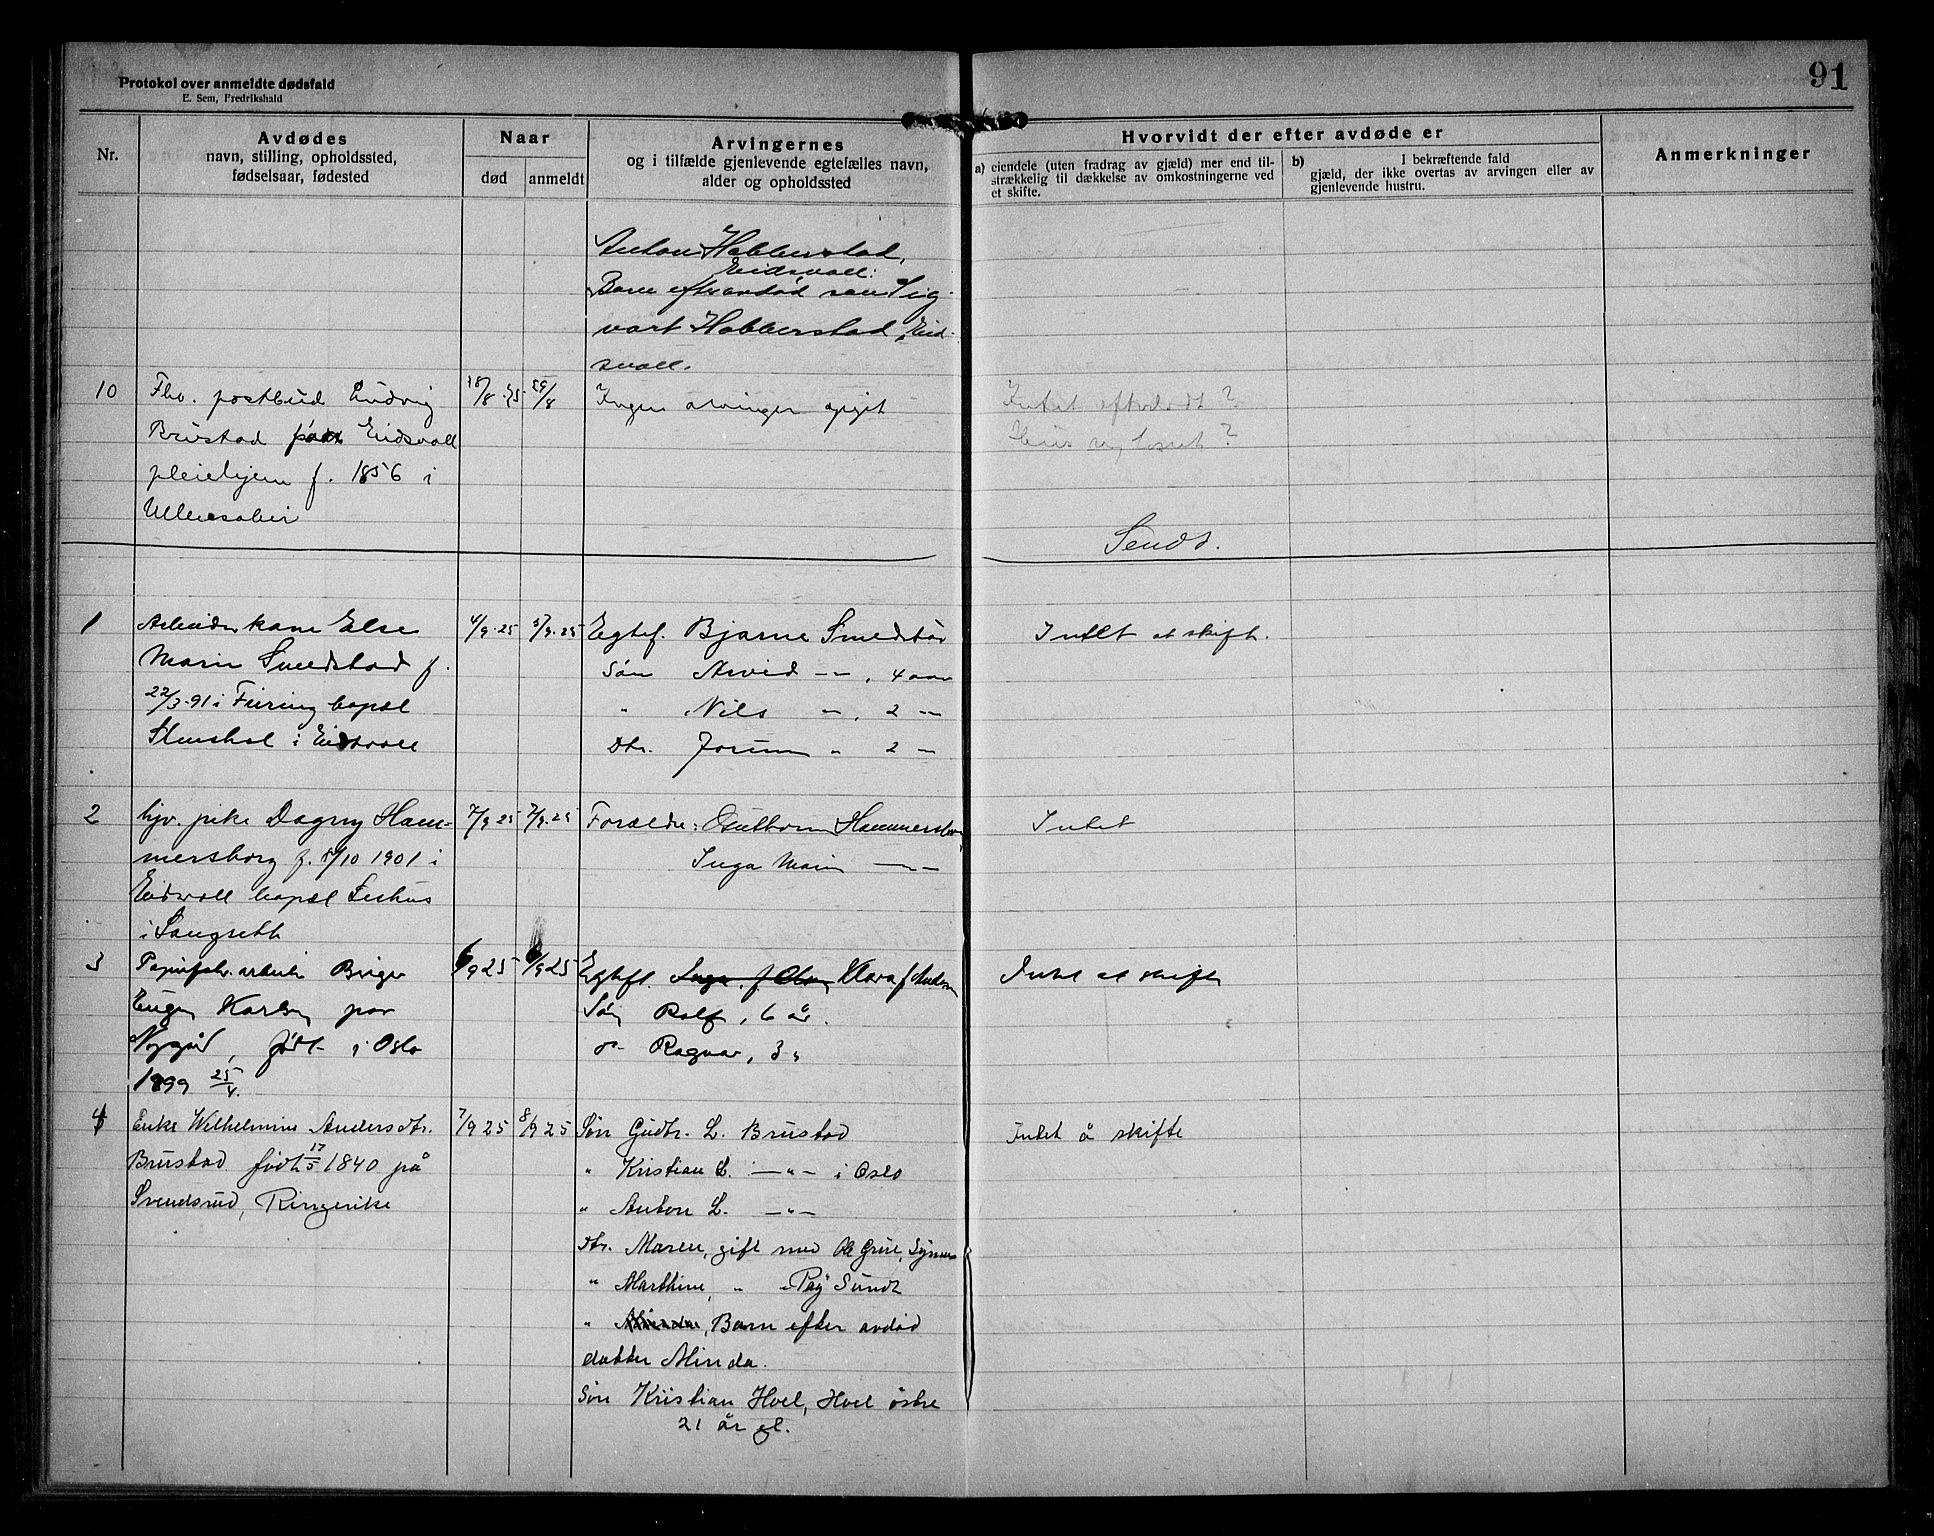 Protokol over anmeldte dødsfald
E. Sem, Fredrikshald
91
Nr.
Avdødes
navn, stilling, opholdssted,
fødselsaar, fødested
Naar
død
anmeldt
Arvingernes
og i tilfælde gjenlevende egtefælles navn,
alder og opholdssted
Hvorvidt der efter avdøde er
a) eiendele (uten fradrag av gjæld) mer end til-
strækkelig til dækkelse av omkostningerne ved
et skifte.
b) I bekræftende fald
gjæld, der ikke overtas av arvingen eller av
gjenlevende hustru.
Anmerkninger
Anton Habberstad,
Eidsvoll:
Barn efter avdød søn Sig-
vart Habberstad, Eid-
svoll.
10
Fhv. postbud Ludvig
Brustad Eidsvoll
pleiehjem f. 1856 i
Ullensaker
18/8 25
29/8
Ingen arvinger opgit
Intet efterladt?
Hus og løsøre?
Sendt.
1
Arbeiderkone Else
Marie Smedstad f.
22/3-91 i Feiring bopæl
Stenshol i Eidsvoll
4/9-25
5/9-25
Egtef. Bjarne Smedstad
Søn Arvid -"-, 4 aar
" Nils -"-, 2 -"-
Dtr. Jorunn " 2 -"-
Intet at skift.
2
hjv. pike Dagny Ham-
mersborg f. 8/10 1901 i
Eidsvoll bopæl
i Langseth
7/9 25
7/9-25
Forældre: Hammersborg
Inga Marie -"-
Intet
3
arbeider Birger
Eugen Karlsen par
Nygård, født i Oslo
1899 25/4.
6/9 25
6/9 25
Egtef. Inga f. Olsen Klara f. Andersen
Søn Rolf, 6 år.
do. Ragnar, 3 "
Intet at skifte
4
Enke Wilhelmine Andersdtr.
Brustad født 17/5 1840 på
Svendsrud, Ringerike
7/9 25
8/9 25
Søn Gudbr. L. Brustad
" Kristian L. -"- i Oslo
" Anton L. -"-
Dtr. Maren, gift med Ole Grue,
" Marthine, " Sundt
" Minda, Barn efter avdød
datter Minda.
Søn Kristian Hoel, Hoel østre
21 år gl.
Intet å skifte